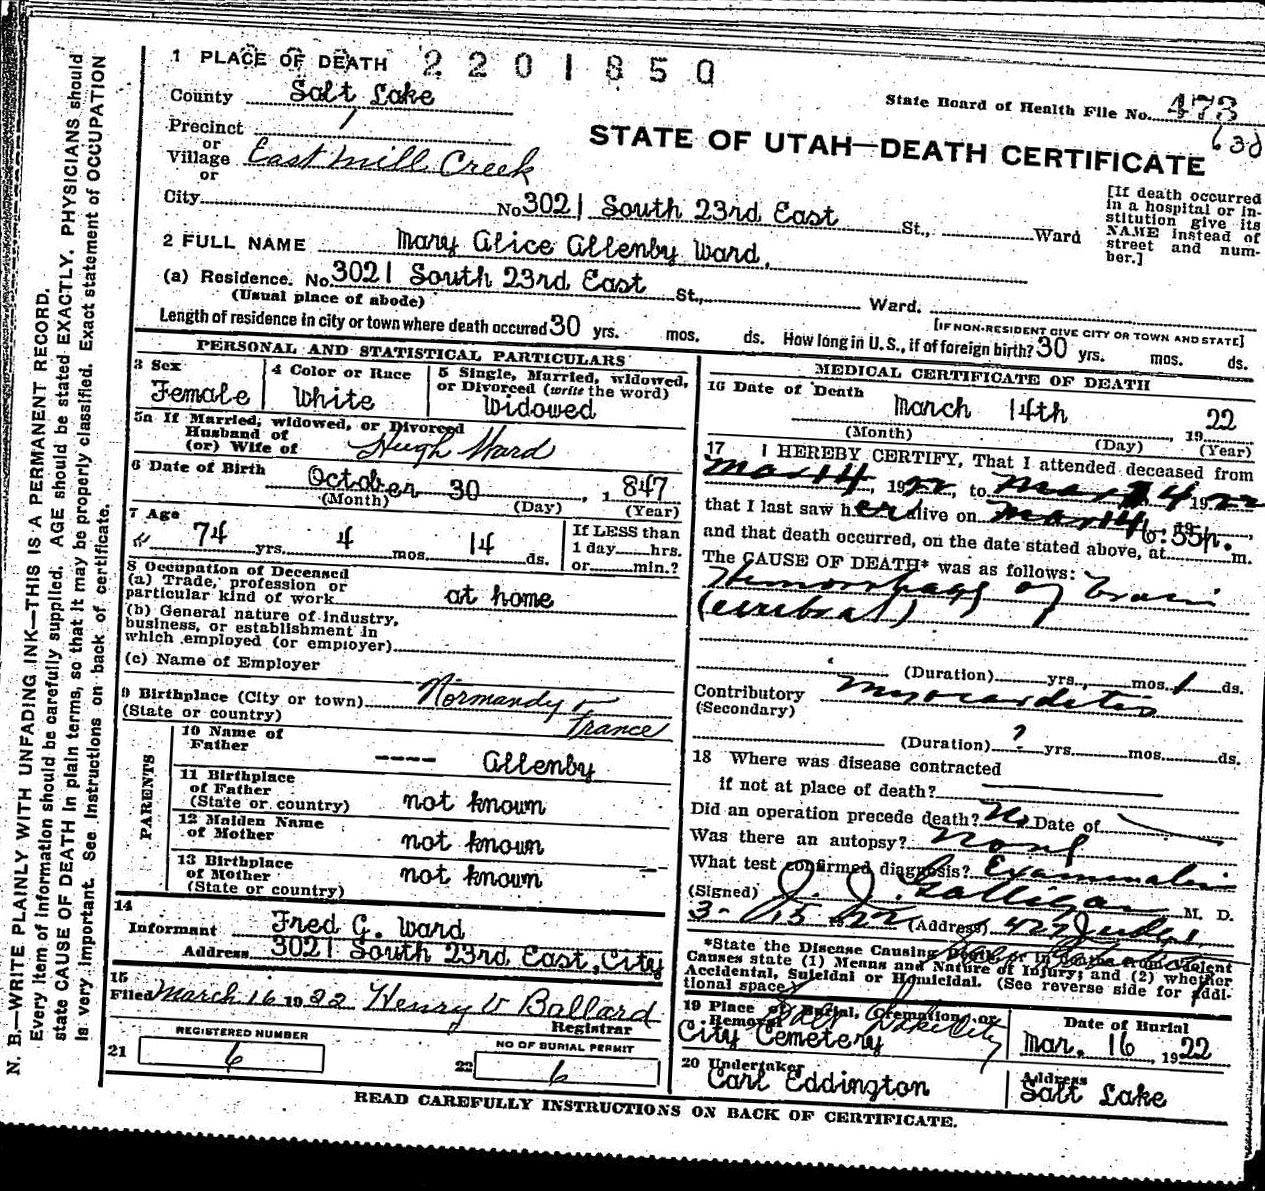 1 PLACE OF DEATH 2201850
County Salt Lake
State Board of Health File No. 473
Precinct 1
or
STATE OF UTAH—DEATH CERTIFICATE
630
Village East Mill Creek
or
City No 3021 South 23rd East St., Ward
[If death occurred in a hospital or in-
stitution give its
NAME instead of
street and num-
ber.]
2 FULL NAME Mary Alice Allenby Ward.
(a) Residence. No. 3021 South 23rd East St., Ward.
(Usual place of abode)
[IF NON-RESIDENT GIVE CITY OR TOWN AND STATE]
Length of residence in city or town where death occured 30 yrs. mos. ds. How long in U. S., if of foreign birth? 30 yrs. mos. ds.
PERSONAL AND STATISTICAL PARTICULARS
3 Sex
Female
4 Color or Race
White
5 Single, Married, widowed,
or Divorced (write the word)
Widowed
5a If Married, widowed, or Divorced
Husband of
(or) Wife of Hugh Ward
6 Date of Birth October 30, 1847
(Month) (Day) (Year)
7 Age
74 yrs. 4 mos. 14 ds.
If LESS than
1 day hrs.
or min.?
8 Occupation of Deceased
(a) Trade, profession or
particular kind of work at home
(b) General nature of industry,
business, or establishment in
which employed (or employer)
(c) Name of Employer
9 Birthplace (City or town) Normandy
(State or country) France
PARENTS
10 Name of
Father ---- Allenby
11 Birthplace
of Father
(State or country) not known
12 Maiden Name
of Mother not known
13 Birthplace
of Mother
(State or country) not known
14
Informant Fred G. Ward
Address 3021 South 23rd East, City
15
Filed March 16 1922 Henry V Ballard
Registrar
REGISTERED NUMBER
21 6
NO OF BURIAL PERMIT
22 6
MEDICAL CERTIFICATE OF DEATH
16 Date of Death
March 14th, 1922
(Month) (Day) (Year)
17 I HEREBY CERTIFY, That I attended deceased from
Mar 14, 1922, to Mar 14 1922
that I last saw her alive on Mar 14, 19
and that death occurred, on the date stated above, at 6:55 p. m.
The CAUSE OF DEATH* was as follows:
Hemorrhage of brain
(cerebral)
(Duration) yrs., mos. 1 ds.
Contributory Myocarditis
(Secondary)
(Duration) ? yrs. mos. ds.
18 Where was disease contracted
if not at place of death?
Did an operation precede death? No Date of
Was there an autopsy? None
What test confirmed diagnosis? Examination
(Signed) J. J. Galligan M. D.
3-15-22 (Address) 427 Judge
*State the Disease Causing Death, or in deaths from Violent
Causes state (1) Means and Nature of Injury; and (2) whether
Accidental, Suicidal or Homicidal. (See reverse side for addi-
tional space.)
19 Place of Burial, Cremation, or
Removal Salt Lake City
City Cemetery
Date of Burial
Mar. 16, 1922
20 Undertaker
Carl Eddington
Address
Salt Lake
READ CAREFULLY INSTRUCTIONS ON BACK OF CERTIFICATE.
N. B.—WRITE PLAINLY WITH UNFADING INK—THIS IS A PERMANENT RECORD.
Every item of information should be carefully supplied. AGE should be stated EXACTLY. PHYSICIANS should
state CAUSE OF DEATH in plain terms, so that it may be properly classified. Exact statement of OCCUPATION
is very important. See instructions on back of certificate.